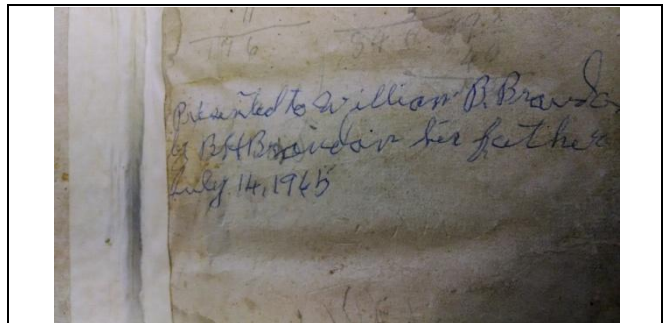 11
196
Presented to William B. Brando
y B H Brandon her father
July 14, 1945